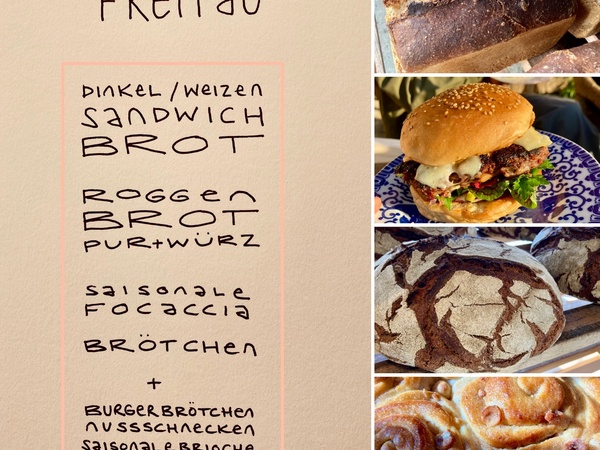 FREITAG
DINKEL / WEIZEN
SANDWICH
BROT
ROGGEN
BROT
PUR+WÜRZ
SAISONALE
FOCACCIA
BRÖTCHEN
+
BURGERBRÖTCHEN
NUSSSCHNECKEN
SAISONALE BRIOCHE